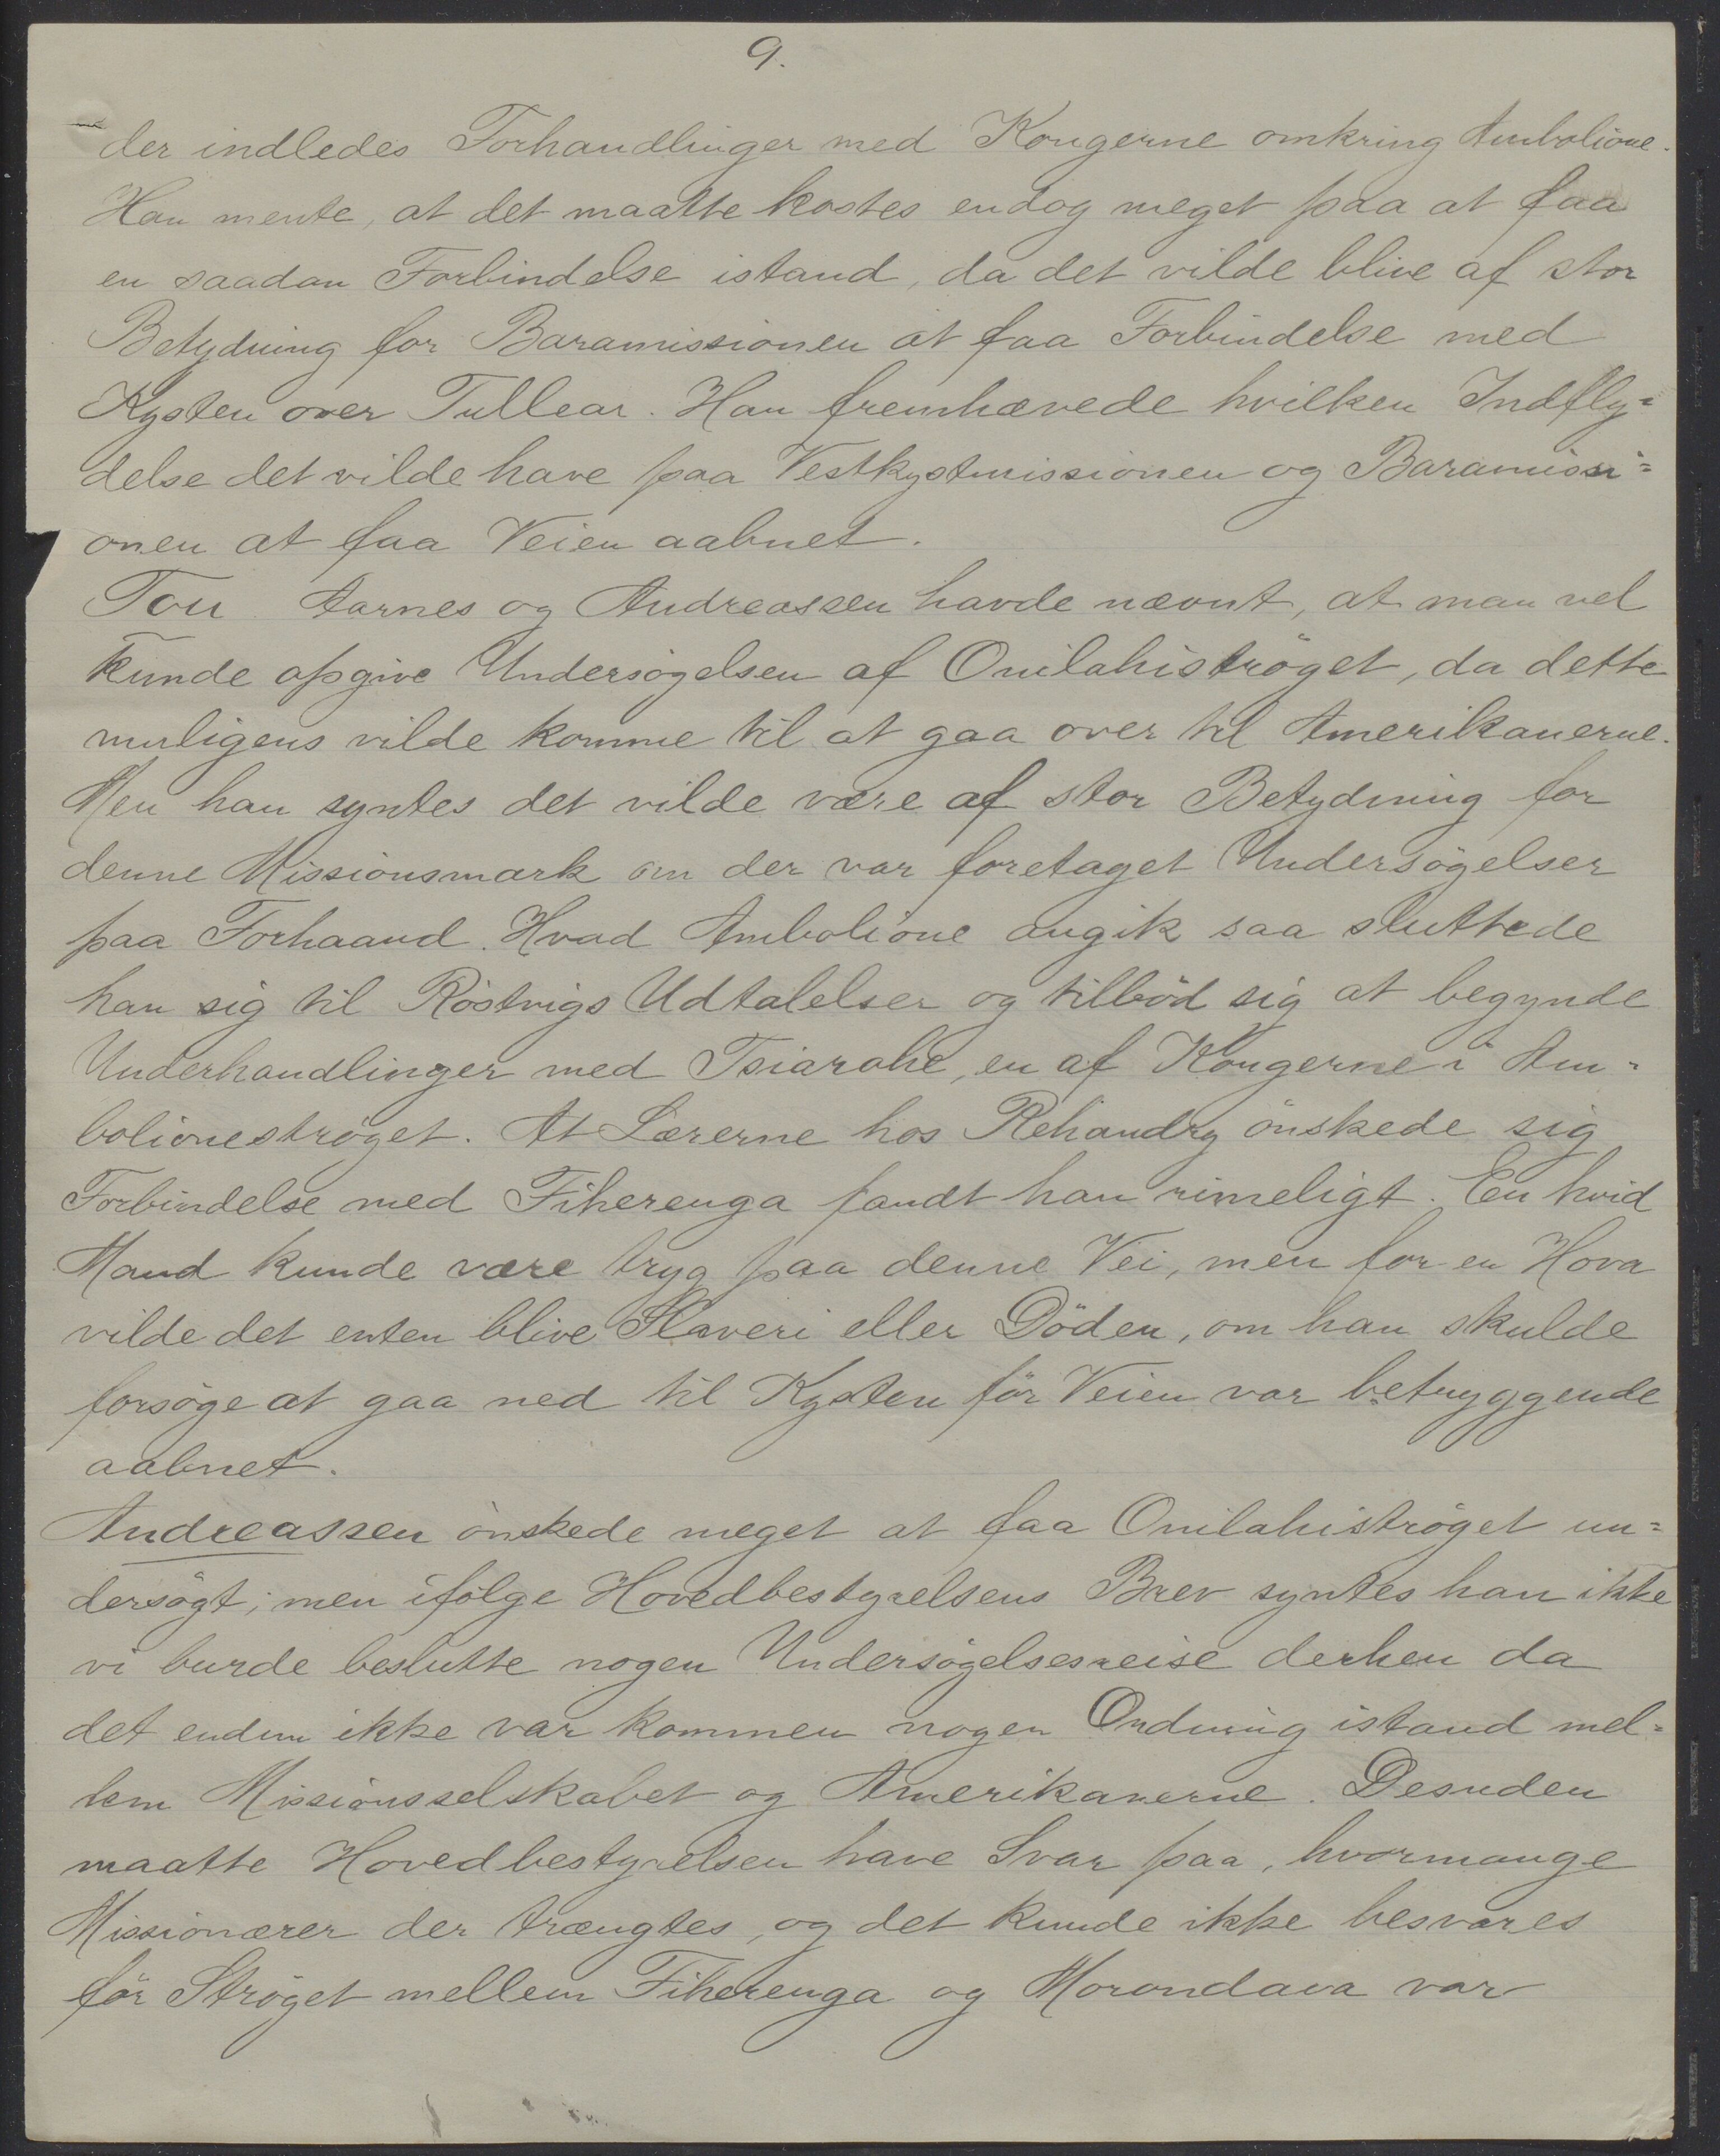 9.
der indledes Forhandlinger med Kongerne omkring Ambolione.
Han mente, at det maatte kostes endog meget paa at faa
en saadan Forbindelse istand, da det vilde blive af stor
Betydning for Baramissionen at faa Forbindelse med
Kysten over Tullear. Han fremhævede hvilken Indfly=
delse det vilde have paa Vestkystmissionen og Baramissi=
onen at faa Veien aabnet.
Tou Aarnes og Andreassen havde nævnt, at man vel
kunde opgive Undersögelsen af Onilahiströget, da dette
muligens vilde komme til at gaa over til Amerikanerne.
Men han syntes det vilde være af stor Betydning for
denne Missionsmark om der var foretaget Undersögelser
paa Forhaand. Hvad Ambolione angik saa sluttede
han sig til Röstvigs Udtalelser og tilböd sig at begynde
Underhandlinger med Tsiarohe, en af Kongerne i Am=
bolioneströget. At Lærerne hos Rehandry önskede sig
Forbindelse med Fiherenga fandt han rimeligt. En hvid
Mand kunde være tryg paa denne Vei, men for en Hova
vilde det enten blive Slaveri eller Döden, om han skulde
forsöge at gaa ned til Kysten för Veien var betryggende
aabnet.
Andreassen önskede meget at faa Onilahiströget un=
dersögt; men ifölge Hovedbestyrelsens Brev syntes han ikke
vi burde beslutte nogen Undersögelsesreise derhen da
det endnu ikke var kommen nogen Ordning istand mel=
lem Missionsselskabet og Amerikanerne. Desuden
maatte Hovedbestyrelsen have Svar paa, hvormange
Missionærer der trængtes, og det kunde ikke besvares
för Ströget mellem Fiherenga og Morondava var